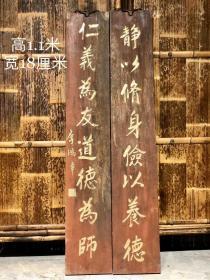 高1.1米
宽18厘米
静以脩身儉以養德
仁義為友道德為師